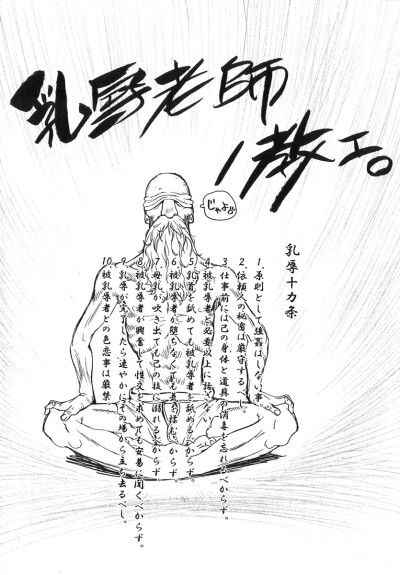 乳辱老師
ノ教エ。
じゃよ
乳辱十カ条
1.原則として強姦はしない事
2.依頼人の秘密は厳守するべし
3.仕事前には己の身体と道具の消毒を忘れるべからず。
4.被乳辱者と必要以上に接しない
5.乳首を舐めても被乳辱者を舐めるべからず。
6.被乳辱者が堕ちなくても
7.母乳が吹き出ても己の技に溺れるべからず
8.被乳辱者が興奮して性交を求めても安易に聞くべからず。
9.乳辱が完了したら速やかにその場から立ち去るべし。
10.被乳辱者との色恋事は厳禁